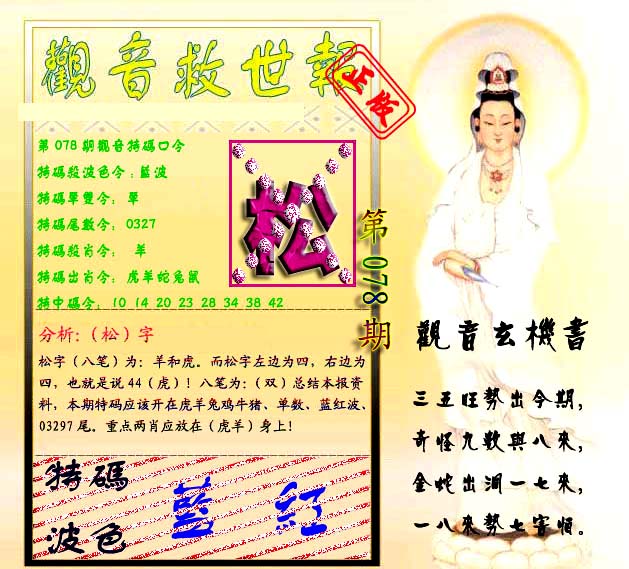 觀音救世報
正版
第078期觀音特碼口令
特碼殺波色令:藍波
特碼單雙令: 單
特碼尾數令: 0327
特碼殺肖令: 羊
特碼出肖令: 虎羊蛇兔鼠
特中碼令: 10 14 20 23 28 34 38 42
松
第078期
分析:(松)字
松字(八笔)为:羊和虎。而松字左边为四,右边为
四,也就是说44(虎)!八笔为:(双)总结本报资
料,本期特码应该开在虎羊兔鸡牛猪、单数、蓝红波、
03297尾。重点两肖应放在(虎羊)身上!
特碼
波色
藍 紅
觀音玄機書
三五旺勢出今期,
奇怪九数與八來,
金蛇出洞一七來,
一八來勢七害恒。